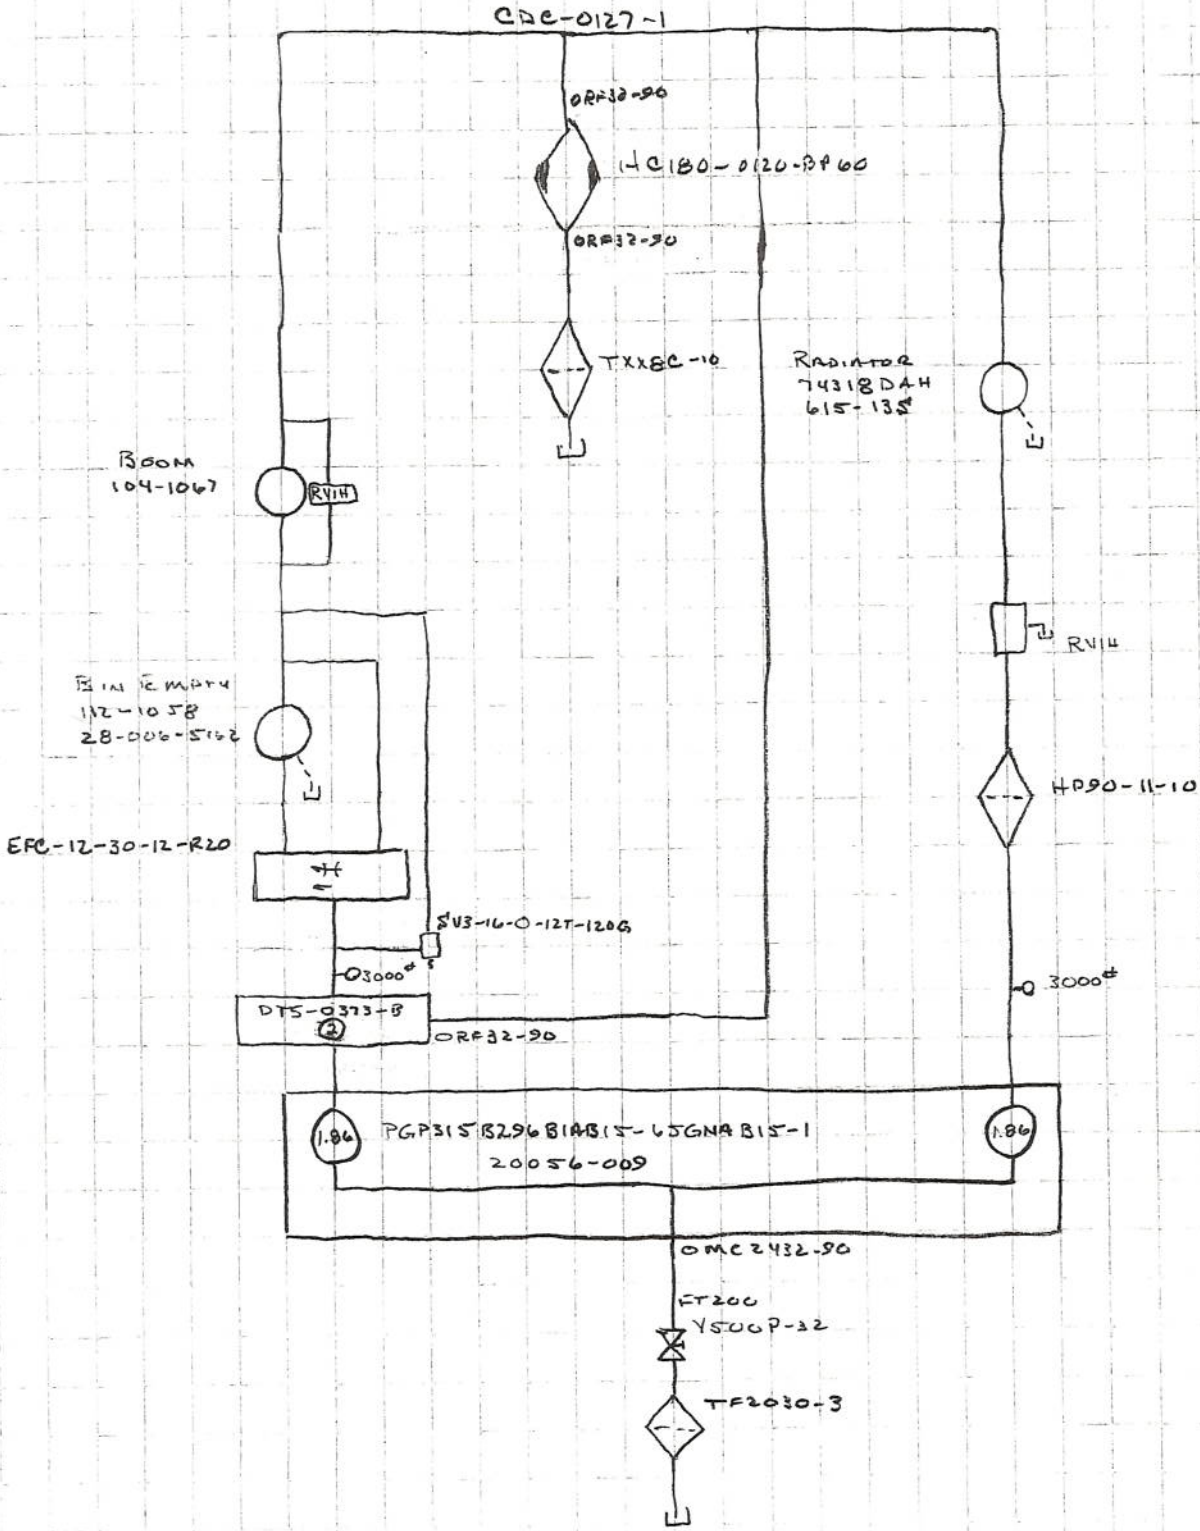 CDC-0127-1
ORF32-90
HC180-0120-BP60
ORF32-90
TXX8C-10
RADIATOR
74318DAH
615-135
BOOM
104-1067
RV1H
RV1H
BIN EMPTY
112-1058
28-006-5162
HP90-11-10
EFC-12-30-12-R20
SV3-16-0-12T-120G
3000#
3000#
DT5-0373-B
2
ORF32-90
1.86
PGP315B296B1AB15-65GNAB15-1
1.86
20056-009
OMC2432-90
FT200
V500P-32
TF2030-3